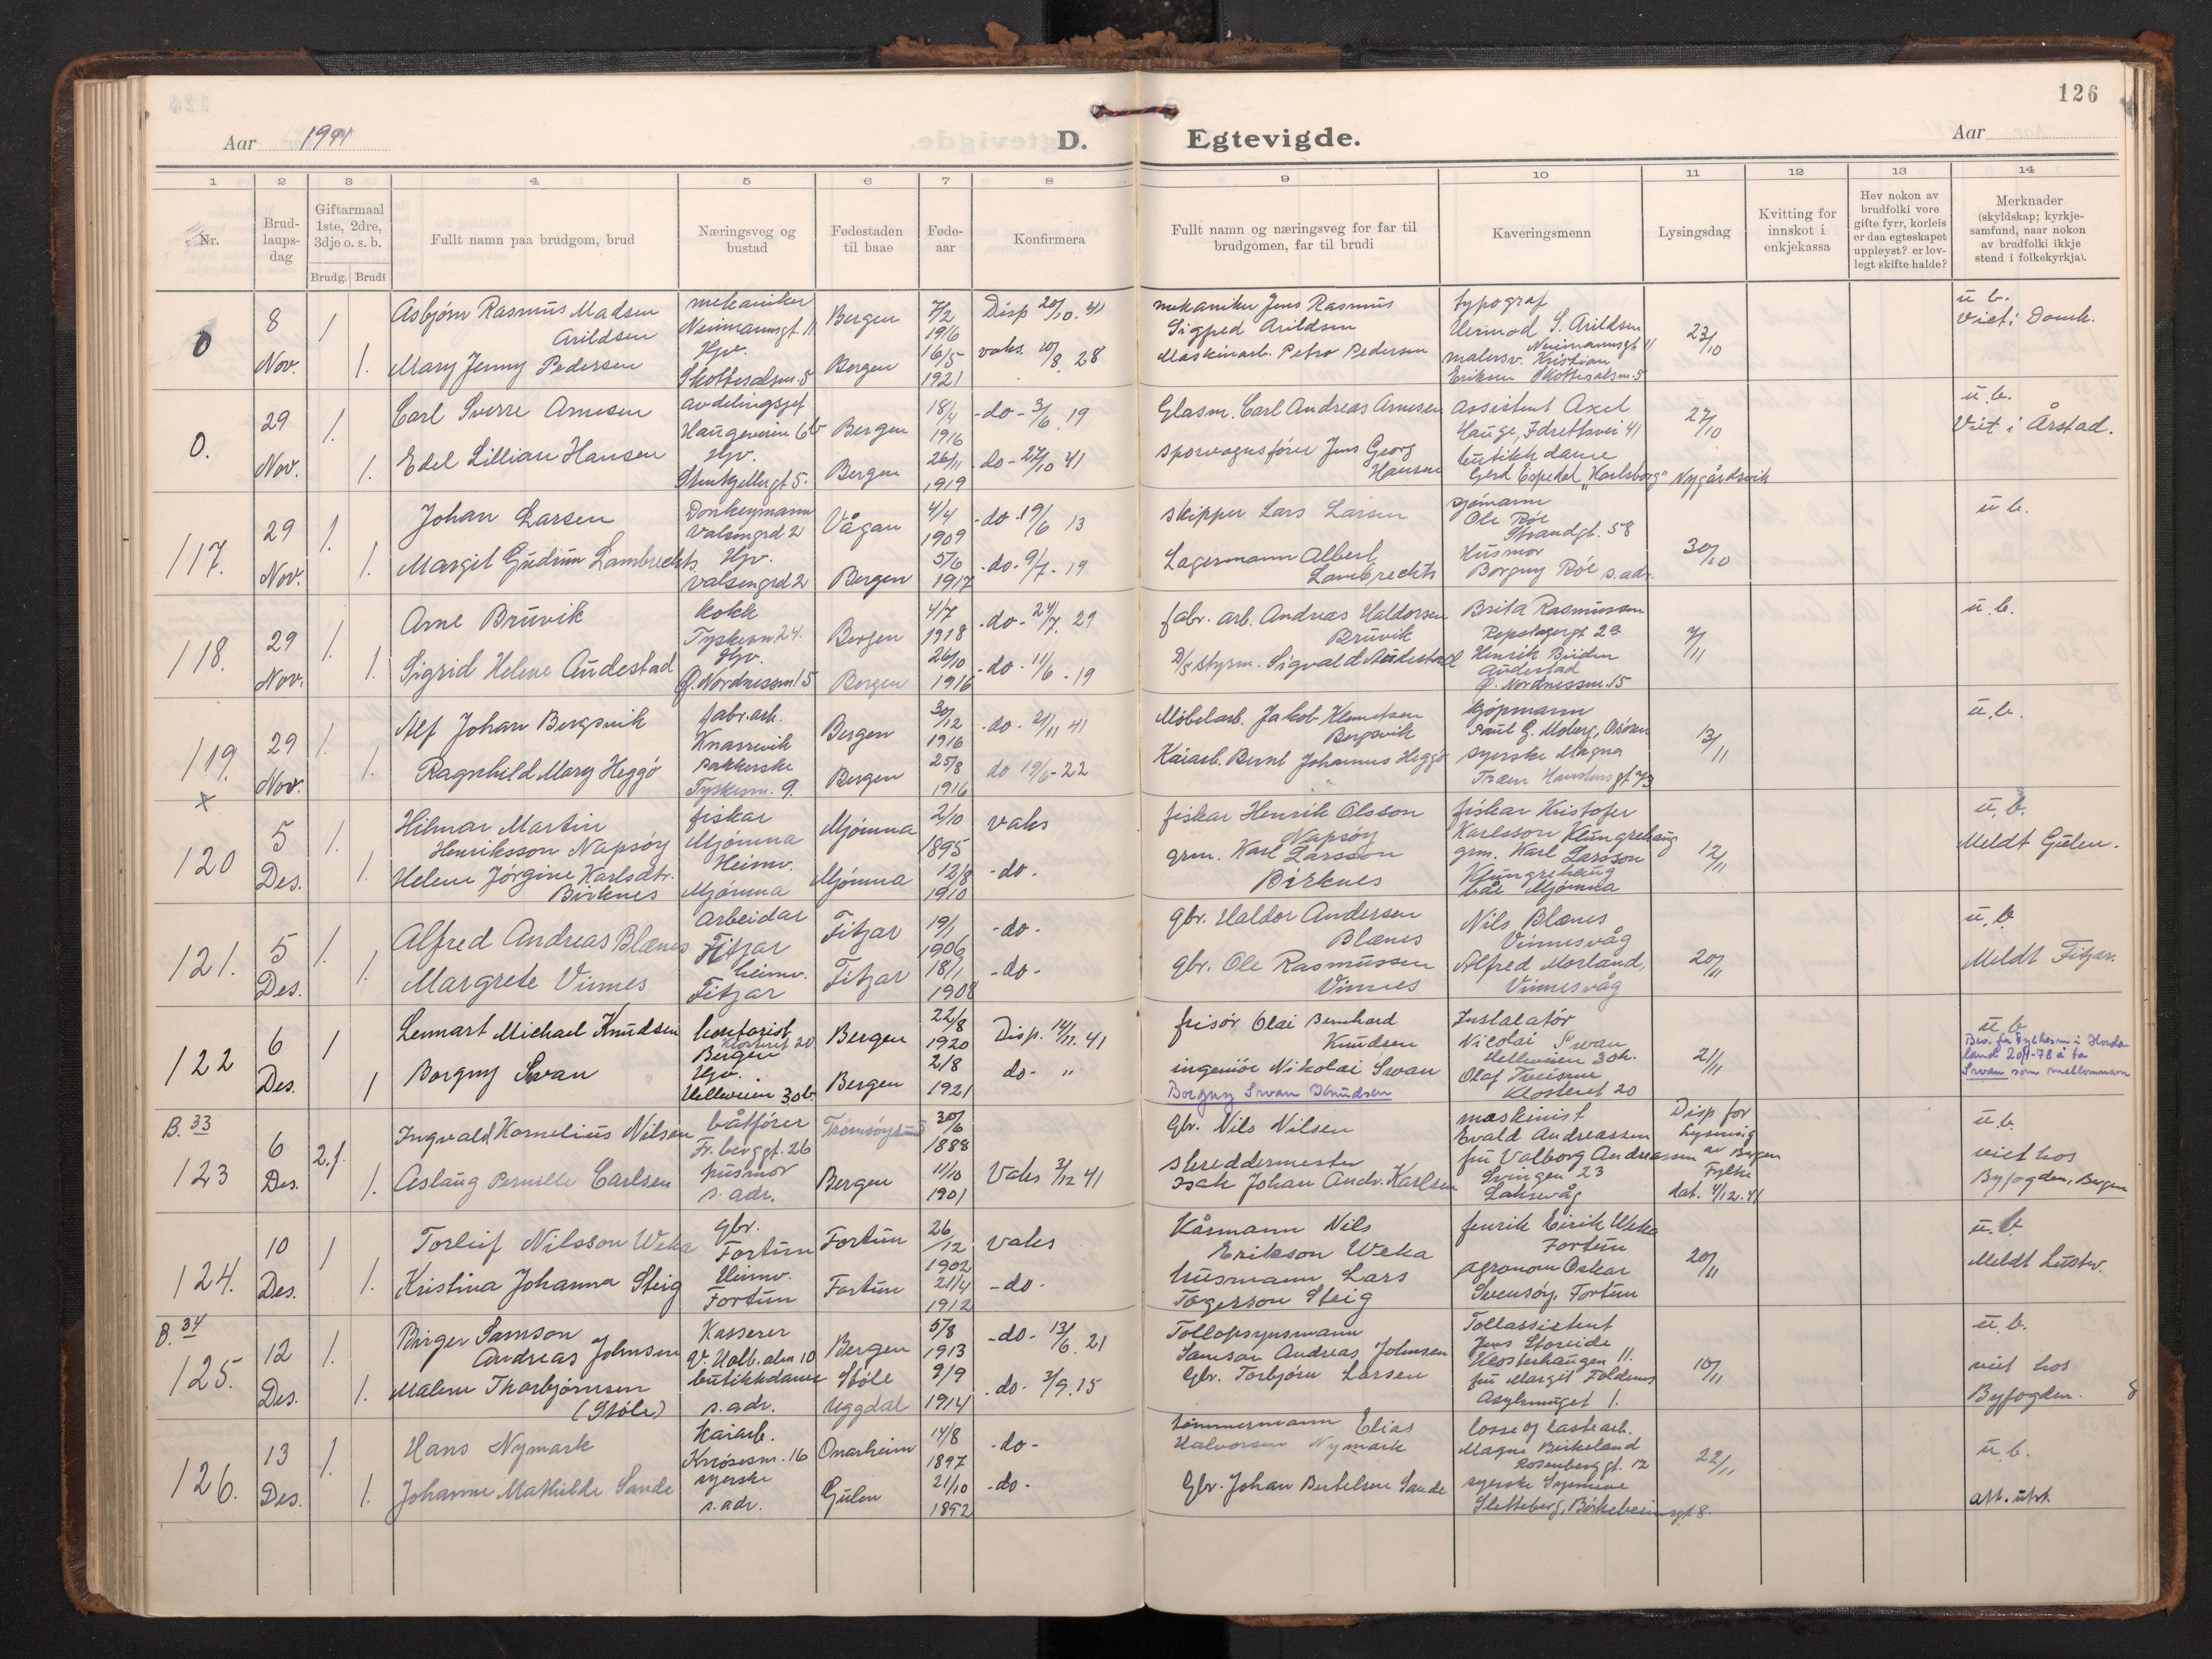 126
Aar 1941
D. Egtevigde.
Aar
1 2 3 4 5 6 7 8 9 10 11 12 13 14
Nr.
Brud-
laups-
dag
Giftarmaal
1ste, 2dre,
3dje o. s. b.
Brudg. Brudi
Fullt namn paa brudgom, brud
Næringsveg og
bustad
Fødestaden
til baae
Føde-
aar
Konfirmera
Fullt namn og næringsveg for far til
brudgomen, far til brudi
Kaveringsmenn
Lysingsdag
Kvitting for
innskot i
enkjekassa
Hev nokon av
brudfolki vore
gifte fyrr, korleis
er daa egteskapet
uppløyst? er lov-
legt skifte halde?
Merknader
(skyldskap; kyrkje-
samfund, naar nokon
av brudfolki ikkje
stend i folkekyrkja).
0
8
Nov.
1
Asbjørn Rasmus Madsen
Arildsen
mekaniker
Neumannsgt. 11
Bergen
7/2
1916
Disp 20/10. 41
mekaniker Jens Rasmus
Sigfred Arildsen
typograf
Vermod S. Arildsen
Neumannsgt 11
23/10
u. b.
Viet i Domk.
1.
Mary Jenny Pedersen
Hjv.
Skottesalsm. 5
Bergen
16/5
1921
vaks. 20/8. 28
Maskinarb. Petro Pedersen
malersv. Kristian
Eriksen Skottesalsm. 5
0.
29
Nov.
1.
Carl Sverre Arnesen
avdelingssjef
Haugeveien 6b
Bergen
18/4
1916
-do- 3/6. 19
Glasm. Carl Andreas Arnesen
Assistent Axel
Hauge, Idrettsvei 41
27/10
u. b.
Viet i Årstad.
1.
Edel Lillian Hansen
Hjv.
Stenkjellergt 5.
Bergen
26/11
1919
-do- 27/10 41
sporvognsfører Jens Georg
Hansen
butikkdame
Gerd Espedal "Karlsborg" Nygårdsvik
117.
29
Nov.
1.
Johan Larsen
Donkeymann
Valsengrd 2
Vågan
4/4
1909
-do. 19/6 13
skipper Lars Larsen
sjömann
Ole Röe
Strandgt. 58
30/10
u. b.
1.
Margit Gudrun Lambrechts
Hjv.
Valsengrd 2
Bergen
5/6
1917
-do- 9/7. 19
Lagermann Albert
Lambrechts
Husmor
Borgny Röe s. adr.
118.
29
Nov.
1.
Arne Bruvik
kokk
Tyskesm. 24.
Bergen
4/7
1918
-do- 24/7. 29
fabr. arb. Andreas Haldorsen
Bruvik
Brita Rasmussen
Repslagergt 2a
7/11
u. b.
1.
Sigrid Helene Audestad
Hjv.
Ø. Nordnessm 15
Bergen
26/10
1916
-do- 11/6. 19
D/s styrm. Sigvald Audestad
Henrik Büiden
Audestad
Ø. Nordnessm. 15
119.
x
29
Nov.
1.
Alf Johan Bergsvik
fabr. arb.
Knarrvik
Bergen
30/12
1916
-do- 21/11 41
Møbelarb. Jakob Klemetsen
Bergsvik
kjøpmann
Paul G. Moberg, Osøren
13/11
u. b.
1.
Ragnhild Mary Heggö
pakkerske
Tyskesm. 9.
Bergen
25/8
1916
do 19/6-22
Kaiarb. Bernt Johannes Heggö
syerske Magna
120
5
Des.
1.
Hilmar Martin
Henriksson Napsøy
fiskar
Mjömna
Mjömna
2/10
1895
vaks
fiskar Henrik Olsson
Napsøy
fiskar Kristofer
Karlsson Klungrehaug
12/11
u. b.
Meldt Gulen.
1.
Helene Jörgine Karlsdtr.
Birknes
Heimv.
Mjömna
Mjömna
12/8
1910
-do-
grm. Karl Larsson
Birknes
grm. Karl Larsson
Klungrehaug
båe Mjömna
121.
5
Des.
1.
Alfred Andreas Blænes
Arbeidar
Fitjar
Fitjar
19/1
1906
-do-
gbr. Haldor Andersen
Blænes
Nils Blænes
Vinnesvåg
20/11
u. b.
Meldt Fitjar.
1.
Margrete Vinnes
heimv.
Fitjar
Fitjar
18/1
1908
-do-
gbr. Ole Rasmussen
Vinnes
Alfred Morland,
Vinnesvåg
122
6
Des.
1
Lennart Michael Knudsen
kontorist
Klosteret 20
Bergen
Bergen
22/8
1920
Disp. 14/11. 41
frisör Olai Bernhard
Knudsen
Instalatör
Nicolai Swan
Helleveien 30b.
21/11
u. b.
Bev. fra Fylkesm i Horda
land 20/1-78 å ta
Swan som mellomnavn
1
Borgny Swan
Hjv.
Helleveien 30b
Bergen
2/8
1921
do- "
ingeniör Nikolai Swan
Borgny Swan Knudsen
Olaf Tveisme
Klosteret 20
B. 33
123
6
Des.
2.f.
Ingvald Kornelius Nilsen
båtförer
Fr. berggt. 26
Tromsöysund
30/6
1888
Gbr. Nils Nilsen
maskinist
Evald Andreassen
Disp for
Lysning
av Bergen
Fylke
dat. 4/12. 41
u. b.
viet hos
Byfogden, Bergen
1.
Aslaug Pernille Carlsen
husmor
s. adr.
Bergen
11/10
1901
Vaks 3/12 41
skreddermester
Isak Johan Andr. Karlsen
fru Valborg Andreassen
Svingen 23
Laksevåg
124.
10
Des.
1
Torleif Nilsson Weka
gbr.
Fortun
Fortun
26/12
1902
vaks
Kårmann Nils
Erikson Weka
fenrik Eirik Weka
Fortun
20/11
u. b.
Meldt Luster.
1.
Kristina Johanna Steig
Heimv.
Fortun
Fortun
21/4
1912
-do-
husmann Lars
Togerson Steig
agronom Oskar
Svensöy, Fortun
B. 34
125.
12
Des.
1.
Birger Samson
Andreas Johnsen
Kasserer
V. Holb. alm 10
Bergen
5/8
1913
-do- 13/6. 21
Tollopsynsmann
Samson Andreas Johnsen
Tollassistent
Jens Storeide
Klosterhaugen 11.
10/11
u. b.
viet hos
Byfogden.
8
1.
Malene Thorbjörnsen
(Stöle)
butikkdame
s. adr.
Stöle
Uggdal
9/9
1914
-do- 3/9. 15
Gbr. Torbjörn Larsen
fru Margit Foldenes
Asylsmuget 1.
126.
13
Des.
1.
Hans Nymark
Kaiarb.
Knösesm. 16
Onarheim
14/8
1897
-do-
tömmermann Elias
Halvorsen Nymark
losse og lastearb.
Magne Birkeland
Rosenberggt. 12
22/11
u. b.
att. utst.
1.
Johanne Mathilde Sande
syerske
s. adr.
Gulen
21/10
1892
-do-
Gbr. Johan Bertelsen Sande
syerske
Sletteberg, Birkebeinergt 8.